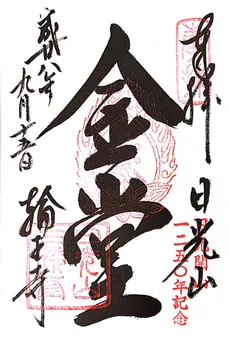 奉拝
日光山
開山
一二五〇年記念
金堂
八年
九月
輪王寺